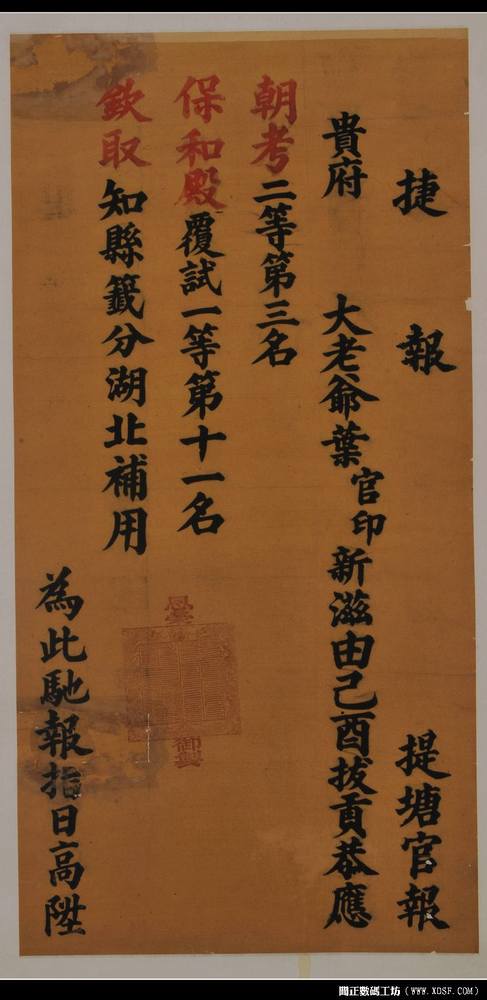 捷報 提塘官報
貴府 大老爺葉官印新滋由己酉拔貢恭應
朝考二等第三名
保和殿覆試一等第十一名
欽取知縣籤分湖北補用
為此馳報指日高陞
聞正數碼工坊（www.XDSF.com）